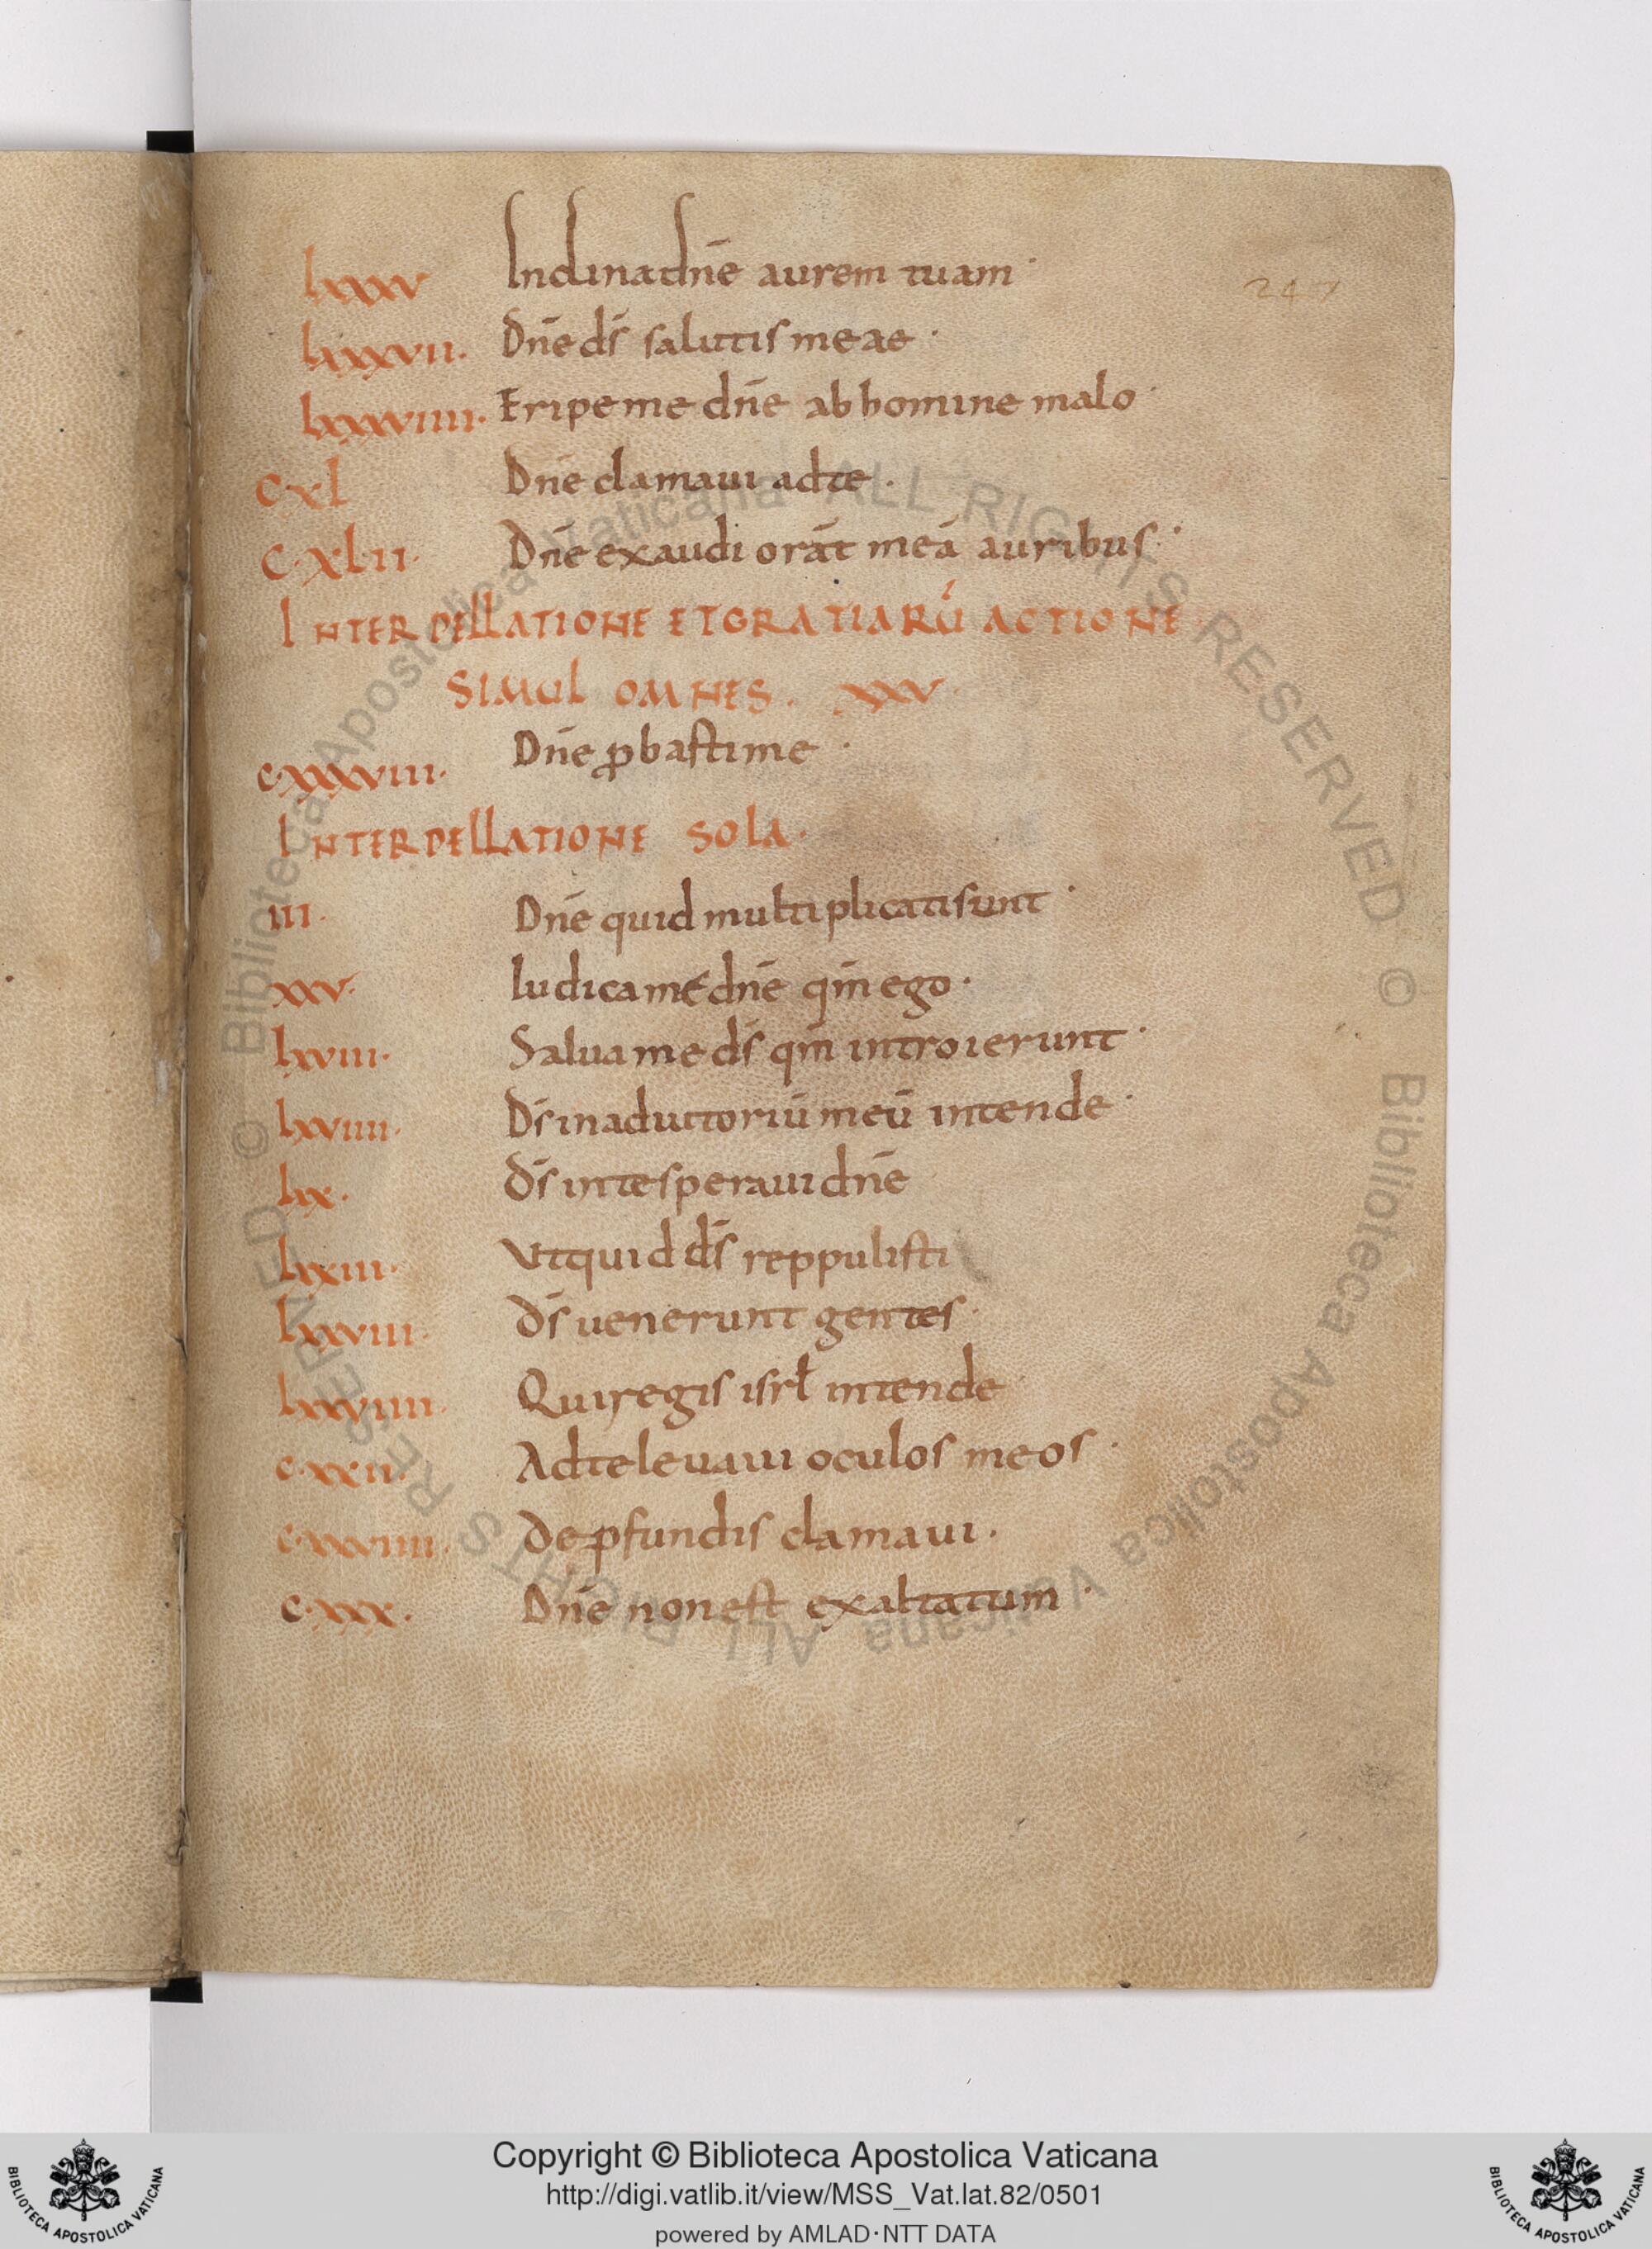 lxxxv Inclina dn̄e aurem tuam ·
247
lxxxvii. Dn̄e ds̄ salutis meae ·
lxxxviiii. Eripe me dn̄e ab homine malo ·
cxl Dn̄e clamaui ad te ·
c·xlii· Dn̄e exaudi orāt meā auribus ·
INTERPELLATIONE ET GRATIARŪ ACTIONE
SIMUL OMNES . XXV·
cxxxviii· Dn̄e ꝓbasti me ·
INTERPELLATIONE SOLA ·
iii· Dn̄e quid multiplicati sunt ·
xxv· Iudica me dn̄e qm̄ ego ·
lxviii· Salua me ds̄ qm̄ introierunt ·
lxviiii· Ds̄ in adiutoriū meū intende ·
lix· ds̄ in te speraui dn̄e
lxxiii· Ut quid ds̄ reppulisti
lxxviii· ds̄ uenerunt gentes ·
lxxviiii· Qui regis isrl̄ intende
c·xxii· Ad te leuaui oculos meos ·
c·xxviiii· de ꝓfundis clamaui ·
c·xxx· Dn̄e non est exaltatum ·
© Biblioteca Apostolica Vaticana ALL RIGHTS RESERVED © Biblioteca Apostolica Vaticana ALL RIGHTS RESERVED
Copyright © Biblioteca Apostolica Vaticana
http://digi.vatlib.it/view/MSS_Vat.lat.82/0501
powered by AMLAD·NTT DATA
BIBLIOTECA APOSTOLICA VATICANA
BIBLIOTECA APOSTOLICA VATICANA